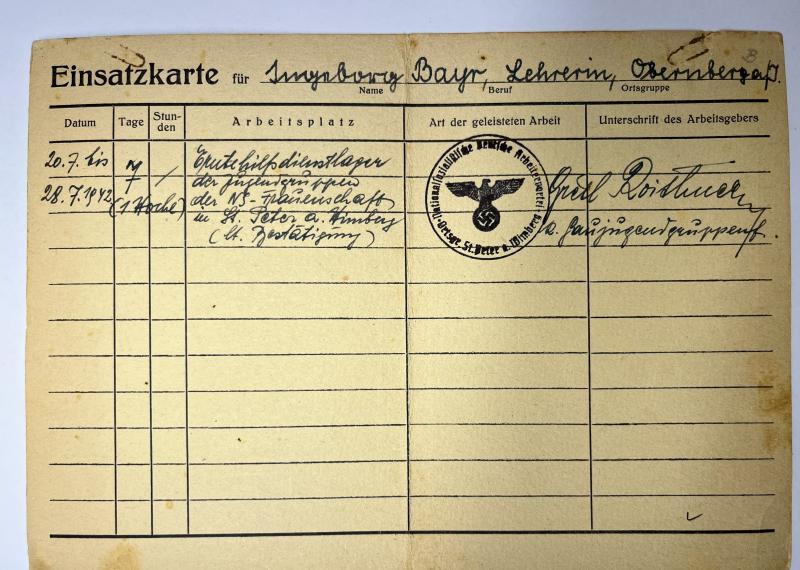 Einsatzkarte für Ingeborg Bayr, Lehrerin, Obernberg a/I.
Name Beruf Ortsgruppe
Datum Tage Stun-den Arbeitsplatz Art der geleisteten Arbeit Unterschrift des Arbeitsgebers
20.7. bis 7 / Erntehilfsdienstlager
28.7.1942 (1 Woche) der Jugendgruppen
der NS-Frauenschaft
in St. Peter a. Wimberg
(lt. Bestätigung)
Nationalsozialistische Deutsche Arbeiterpartei
Ortsgr. St. Peter a. Wimberg
Gretl
a. Gaujugendgruppenf.